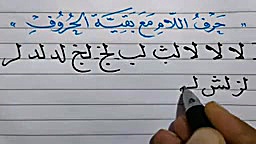 " حَرْفُ اللَّامِ مَعَ بَقِيَّةِ الْحُرُوفِ "
لا لا لا لا لث لب لج لخ لد لد لر
لز لش لـ